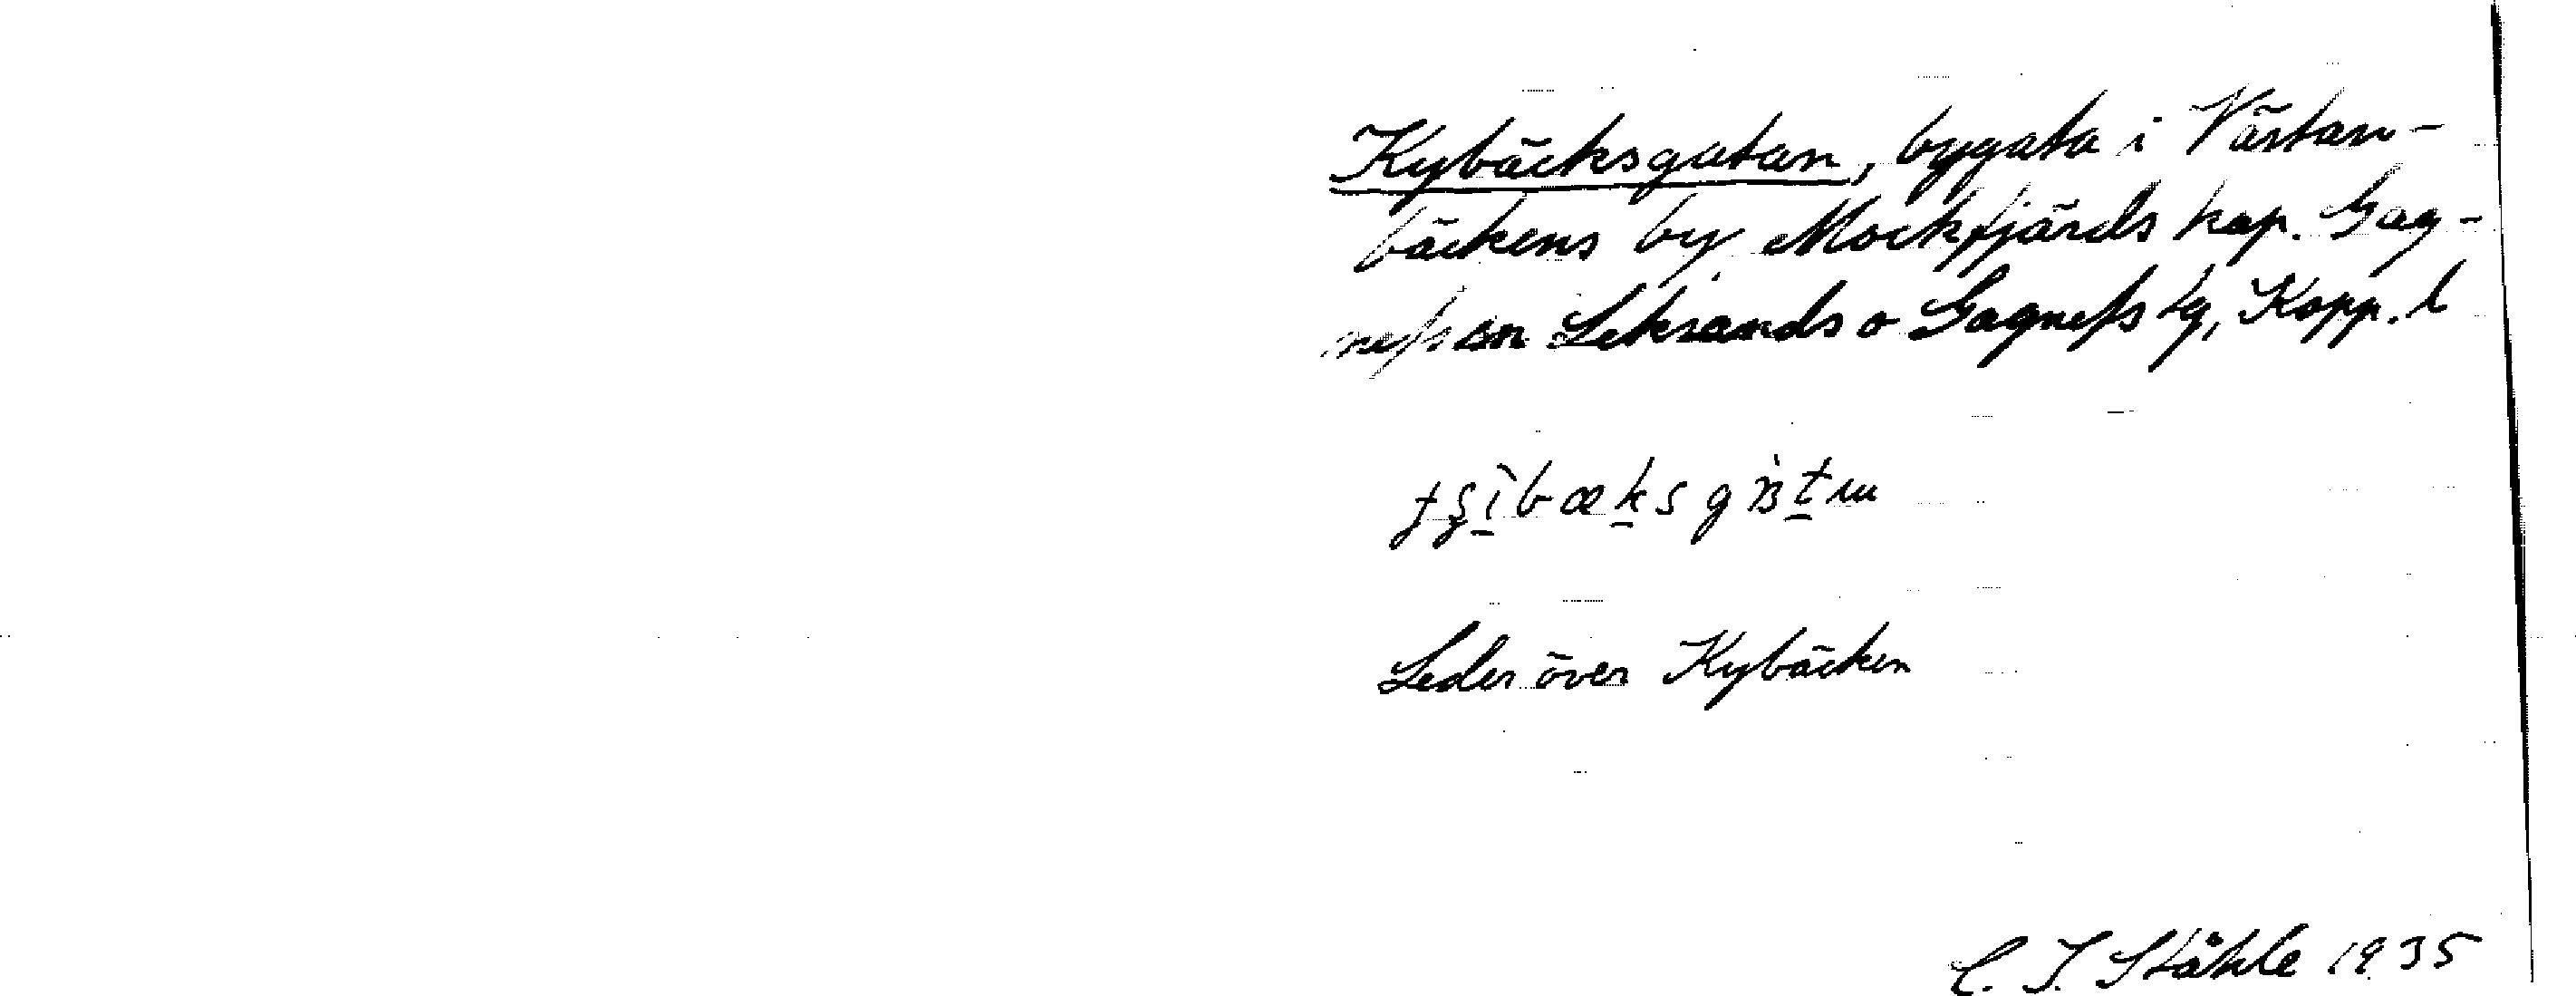 Kybäcksgatan, bygata i Västan-
bäckens by Mockfjärds kap. Gag-
nefs sn Leksands o Gagnefs tg, Kopp. l
Leder över Kybäcken
C. I. Ståhle 1935